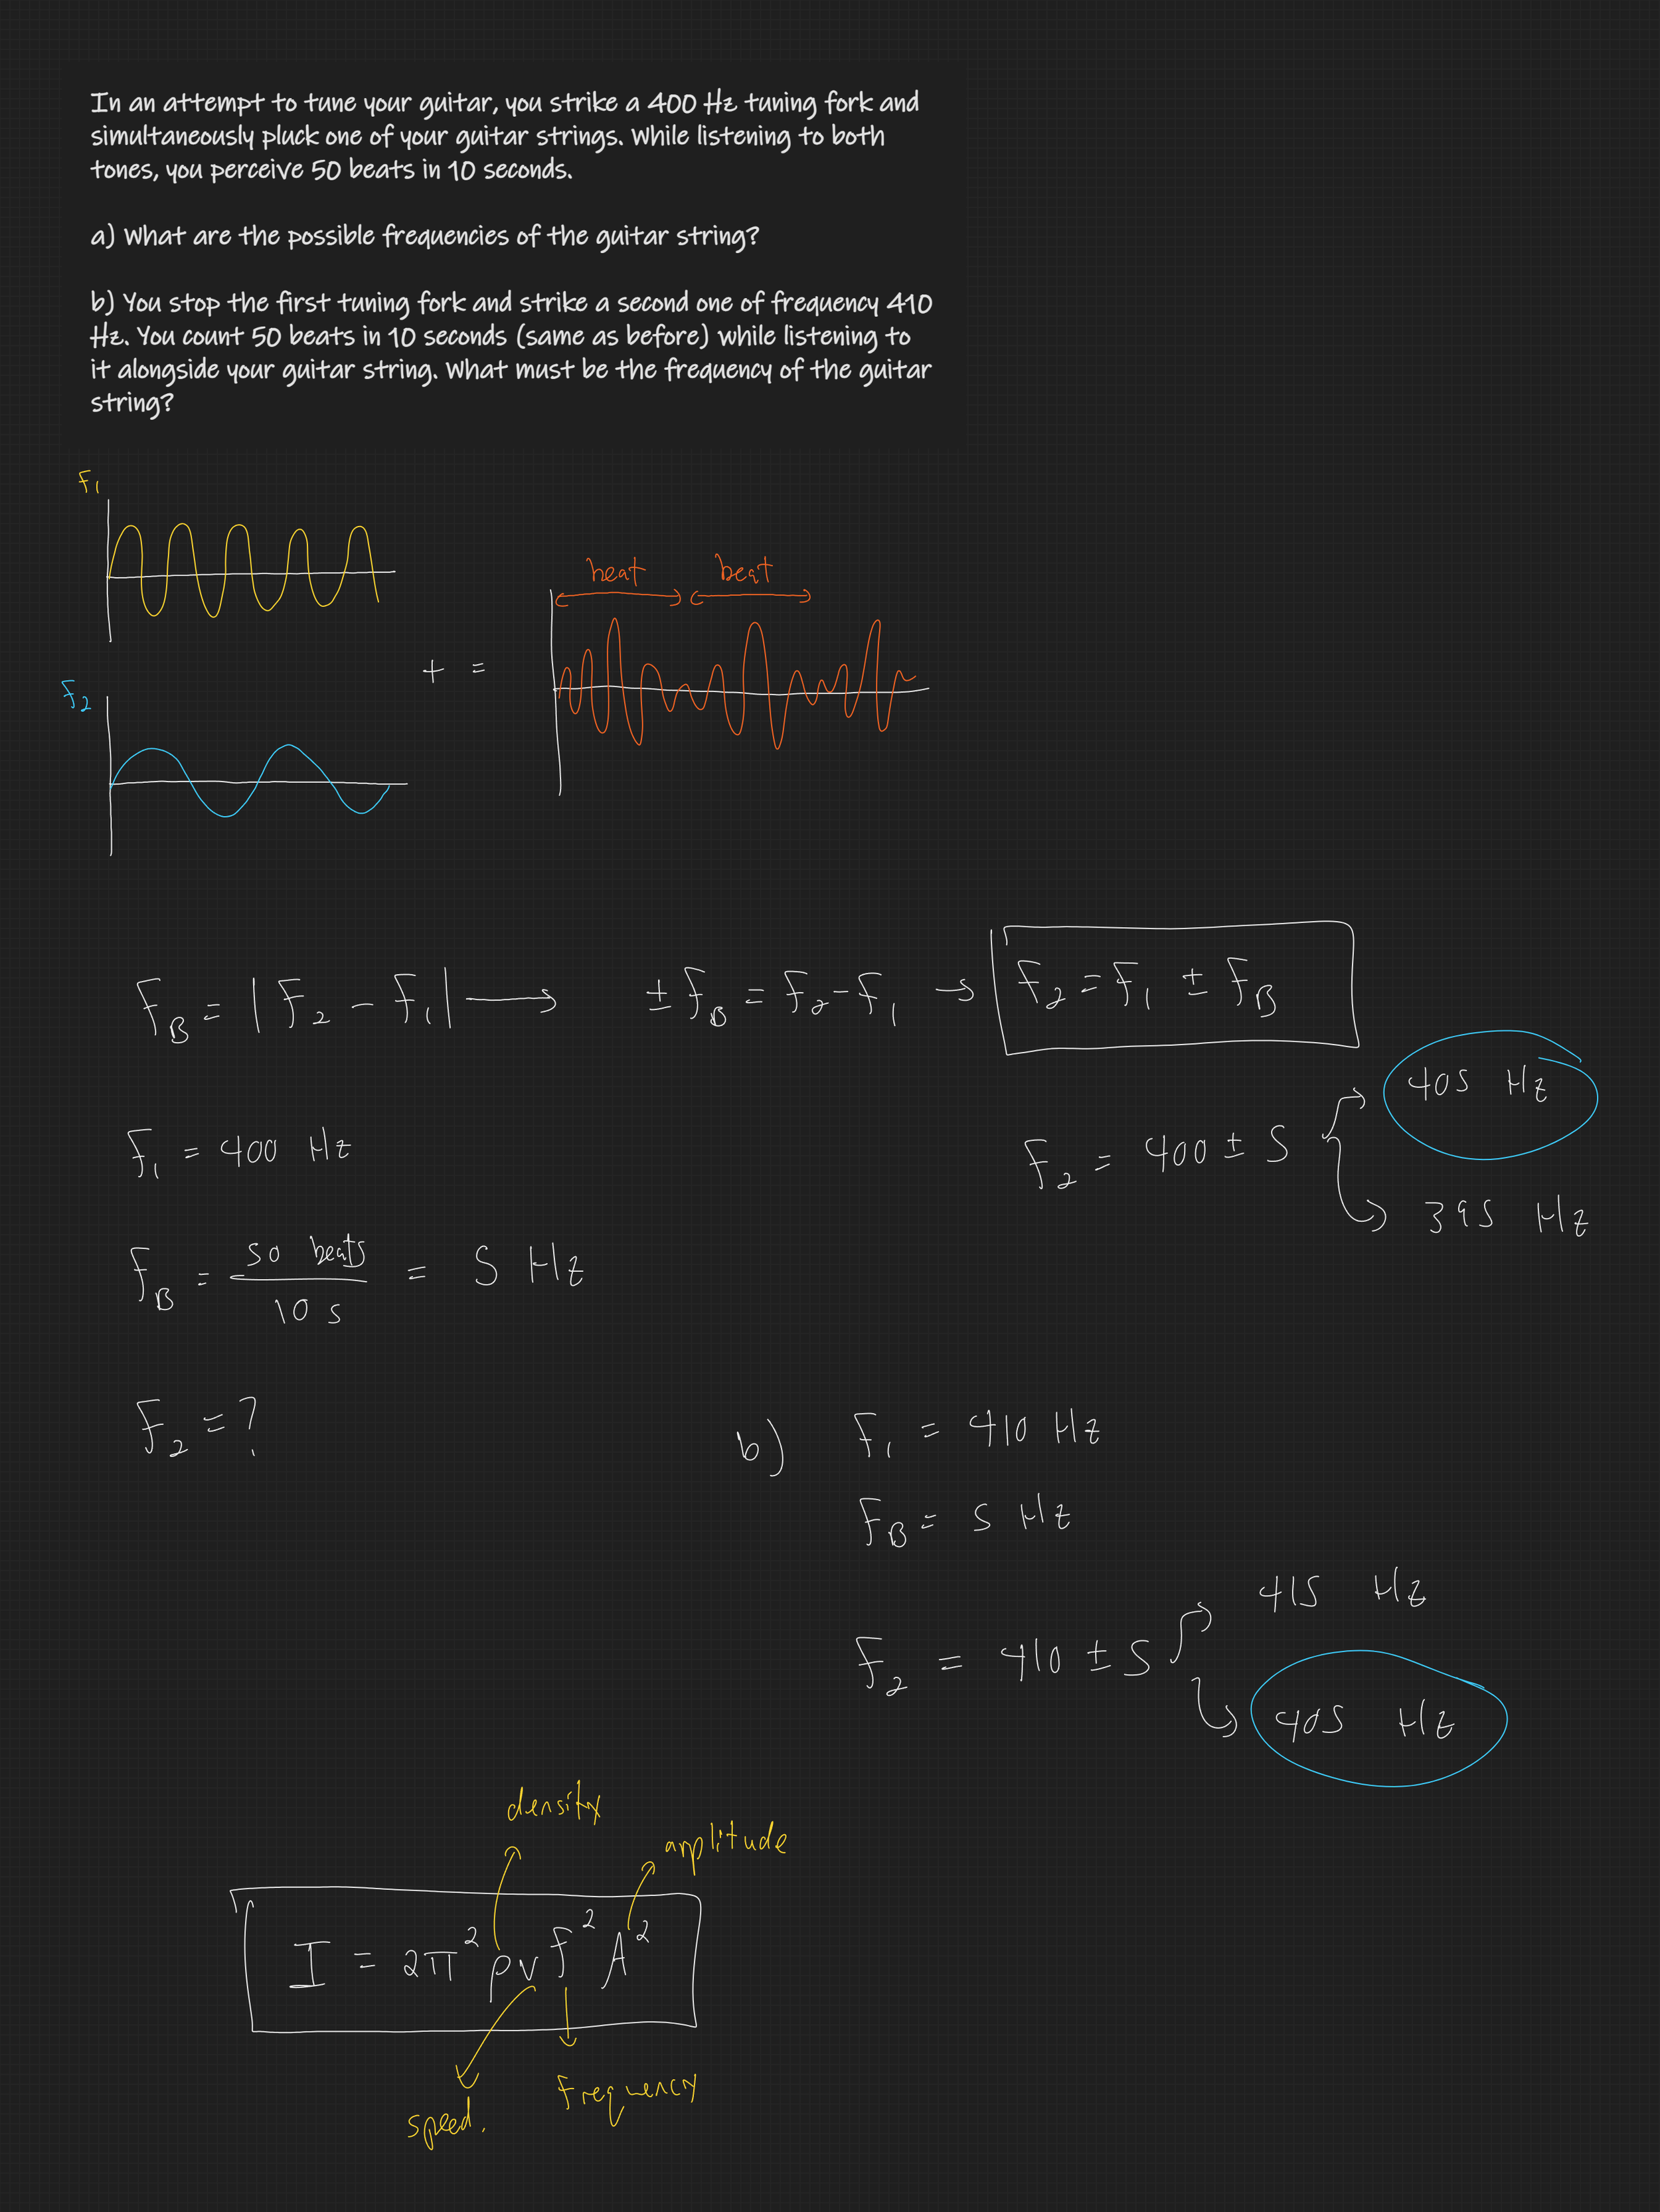 In an attempt to tune your guitar, you strike a 400 Hz tuning fork and
simultaneously pluck one of your guitar strings. While listening to both
tones, you perceive 50 beats in 10 seconds.
a) What are the possible frequencies of the guitar string?
b) You stop the first tuning fork and strike a second one of frequency 410
Hz. You count 50 beats in 10 seconds (same as before) while listening to
it alongside your guitar string. What must be the frequency of the guitar
string?
F₁
beat beat
+ =
F₂
F_B = |F₂ - F₁| → ±F_B = F₂ - F₁ → F₂ = F₁ ± F_B
F₁ = 400 Hz
F_B = 50 beats / 10 s = 5 Hz
F₂ = ?
F₂ = 400 ± 5
405 Hz
395 Hz
b) F₁ = 410 Hz
F_B = 5 Hz
F₂ = 410 ± 5
415 Hz
405 Hz
density
amplitude
I = 2π²ρvf²A²
speed.
frequency